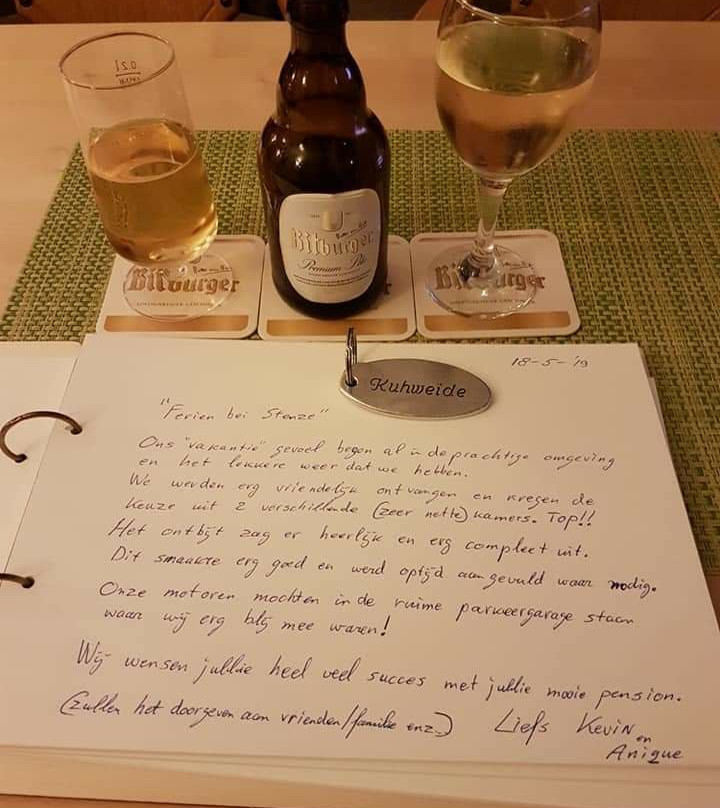 0.2l
Bitburger
Premium Pils
Bitburger
Bitburger
18-5-'19
Kuhweide
"Ferien bei Stenze"
Ons "vakantie" gevoel begon al in de prachtige omgeving
en het lekkere weer dat we hebben.
We werden erg vriendelijk ontvangen en kregen de
keuze uit 2 verschillende (zeer nette) kamers. Top!!
Het ontbijt zag er heerlijk en erg compleet uit.
Dit smaakte erg goed en werd optijd aangevuld waar nodig.
Onze motoren mochten in de ruime parkeergarage staan
waar wij erg blij mee waren!
Wij wensen jullie heel veel succes met jullie mooie pension.
(zullen het doorgeven aan vrienden/familie enz.)
Liefs Kevin
en
Anique